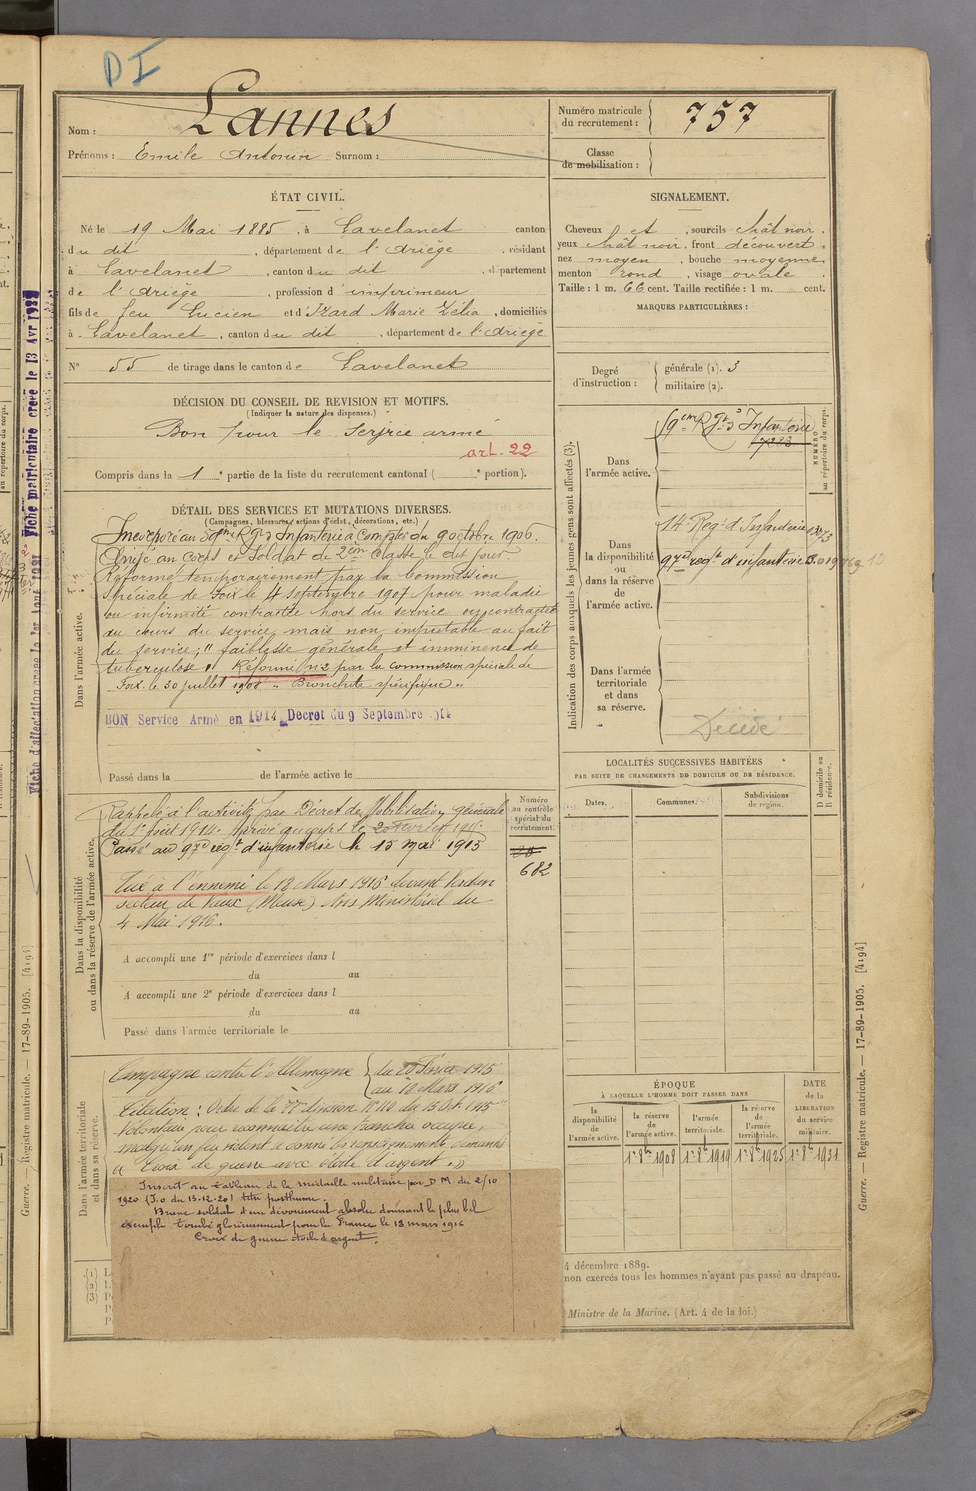 DI
Nom : Lannes
Prénoms : Emile Antonin Surnom :
Numéro matricule du recrutement : 757
Classe de mobilisation :
ÉTAT CIVIL.
Né le 19 Mai 1885, à Lavelanet canton
du dit, département de l'Ariège, résidant
à Lavelanet, canton du dit, département
de l'Ariège, profession d'imprimeur
fils de feu Lucien et d'Izard Marie Zélia, domiciliés
à Lavelanet, canton du dit, département de l'Ariège
N° 55 de tirage dans le canton de Lavelanet
SIGNALEMENT.
Cheveux et, sourcils chât noir,
yeux chât noir, front découvert,
nez moyen, bouche moyenne,
menton rond, visage ovale.
Taille : 1 m. 66 cent. Taille rectifiée : 1 m. cent.
MARQUES PARTICULIÈRES :
Degré d'instruction :
générale (1). 3
militaire (2).
DÉCISION DU CONSEIL DE REVISION ET MOTIFS.
(Indiquer la nature des dispenses.)
Bon pour le service armé
art. 22
Compris dans la 1 e partie de la liste du recrutement cantonal ( e portion).
DÉTAIL DES SERVICES ET MUTATIONS DIVERSES.
(Campagnes, blessures, actions d'éclat, décorations, etc.)
Dans l'armée active.
Incorporé au 59ème Rgt d'Infanterie à compter du 9 octobre 1906.
Arrivé au corps et Soldat de 2ème classe le dit jour
Réformé temporairement par la Commission
spéciale de Foix le 4 Septembre 1907 pour maladie
ou infirmité contractée hors du service ou contractée
au cours du service, mais non imputable au fait
du service ; "faiblesse générale et imminence de
tuberculose". Réformé n°2 par la commission spéciale de
Foix le 30 juillet 1908 "Bronchite spécifique".
BON Service Armé en 1914 Décret du 9 Septembre 1914
Passé dans la de l'armée active le
Dans la disponibilité ou dans la réserve de l'armée active.
Rappelé à l'activité par Décret de Mobilisation générale
du 1er Août 1914. Arrivé au corps le 20 Février 1915.
Passé au 97e rég.t d'infanterie le 15 mai 1915
Tué à l'ennemi le 18 Mars 1916 devant Verdun
secteur de Vaux (Meuse) Avis Ministériel du
4 Mai 1916.
Numéro au contrôle spécial du recrutement
682
A accompli une 1re période d'exercices dans l
du au
A accompli une 2e période d'exercices dans l
du au
Passé dans l'armée territoriale le
Dans l'armée territoriale et dans sa réserve.
Campagne contre l'Allemagne du 20 Février 1915
au 18 Mars 1916
Citation : Ordre de la 77e division N° 110 du 15 Oct. 1915
Volontaire pour reconnaître une tranchée occupée,
malgré un feu violent a donné les renseignements demandés
Croix de guerre avec étoile d'argent."
Inscrit au tableau de la médaille militaire par D M. du 2/10
1920 (J.O du 13.12.20) titre posthume.
Brave soldat d'un dévouement absolu donnant le plus bel
exemple Tombé glorieusement pour la France le 18 mars 1916
Croix de guerre étoile d'argent.
(1) L
(2) L
(3) P
Indication des corps auxquels les jeunes gens sont affectés (3).
Dans l'armée active.
59ème Rgt d'Infanterie
NUMÉRO au répertoire du corps.
Dans la disponibilité ou dans la réserve de l'armée active.
14e Reg. d'Infanterie
97e rég.t d'infanterie
Dans l'armée territoriale et dans sa réserve.
Décédé
LOCALITÉS SUCCESSIVES HABITÉES
PAR SUITE DE CHANGEMENTS DE DOMICILE OU DE RÉSIDENCE.
Dates. Communes. Subdivisions de région.
D domicile ou R résidence.
ÉPOQUE
À LAQUELLE L'HOMME DOIT PASSER DANS
la disponibilité de l'armée active.
la réserve de l'armée active.
l'armée territoriale.
la réserve de l'armée territoriale.
DATE de la LIBÉRATION du service militaire.
1er 8bre 1908 1er 8bre 1919 1er 8bre 1925 1er 8bre 1931
4 décembre 1889.
non exercés tous les hommes n'ayant pas passé au drapeau.
Ministre de la Marine. (Art. 4 de la loi.)
Guerre. — Registre matricule. — 17-89-1905. [4194]
Guerre. — Registre matricule. — 17-89-1905. [4194]